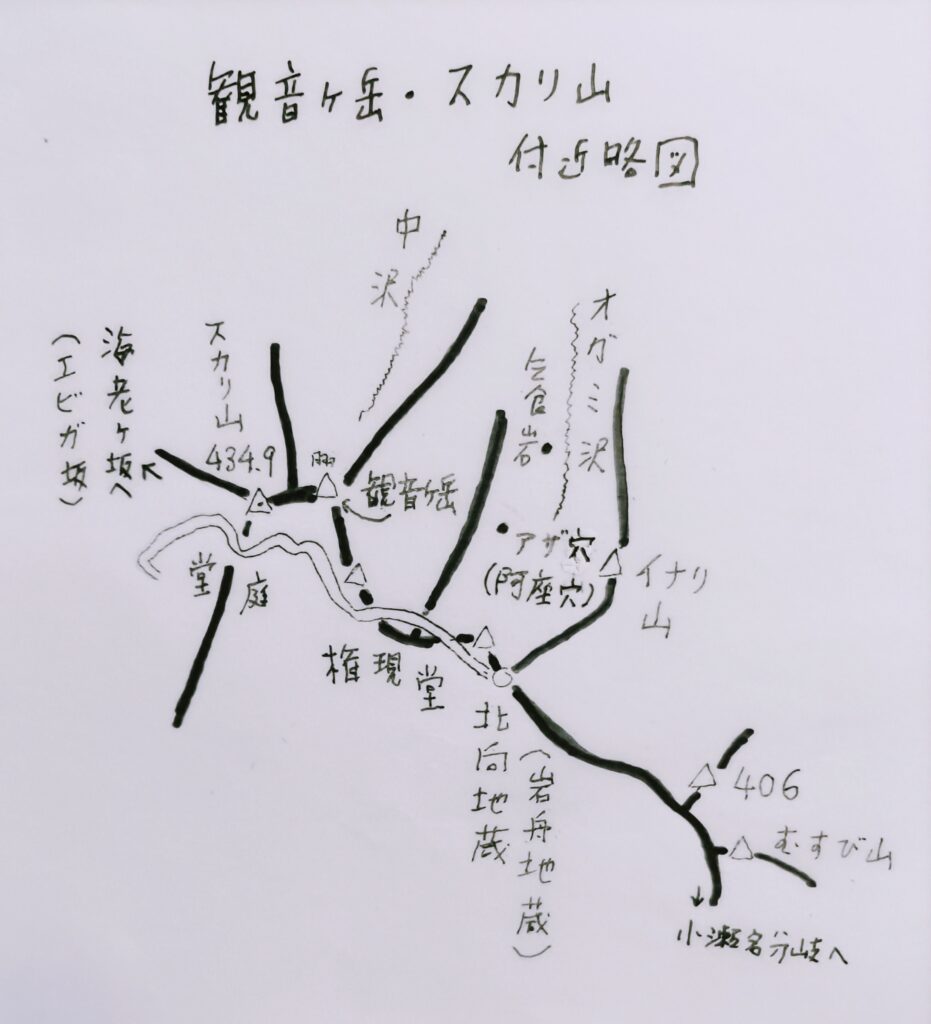 観音ヶ岳・スカリ山
付近略図
中沢
オガミ沢
スカリ山
434.9
海老ヶ坂へ
(エビガ坂)
観音ヶ岳
アザ穴
(阿座穴)
イナリ山
堂庭
権現堂
北向地蔵
(岩舟地蔵)
406
むすび山
小瀬名分岐へ